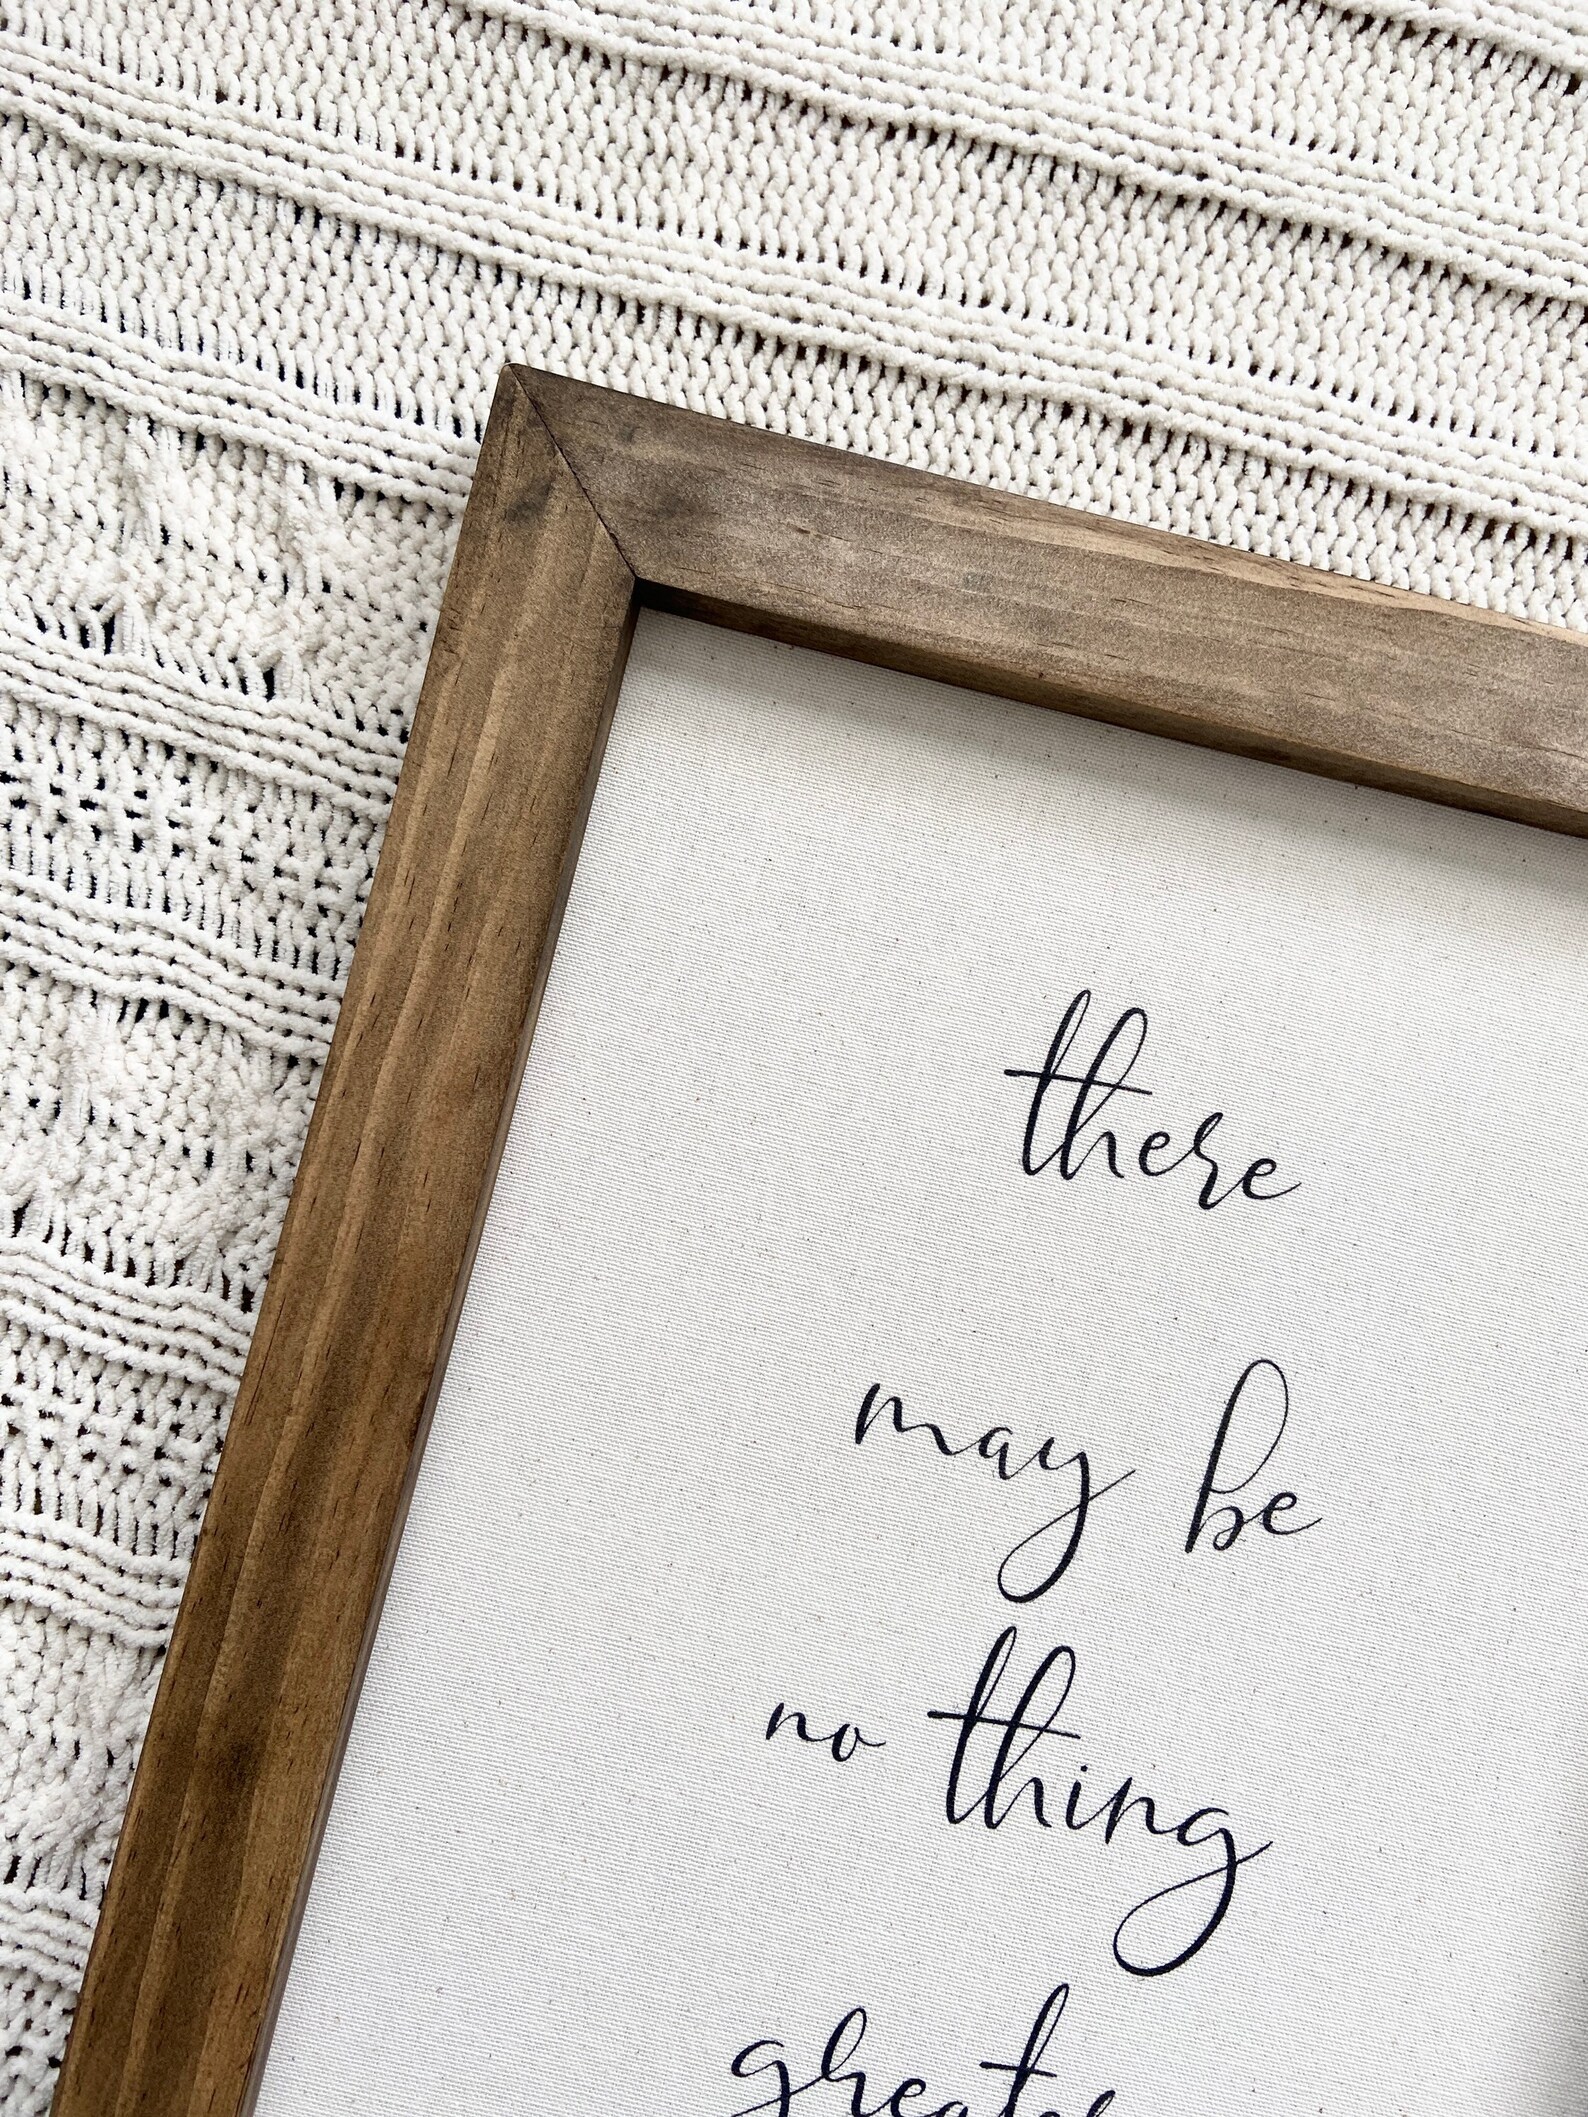 there
may be
no thing
greater